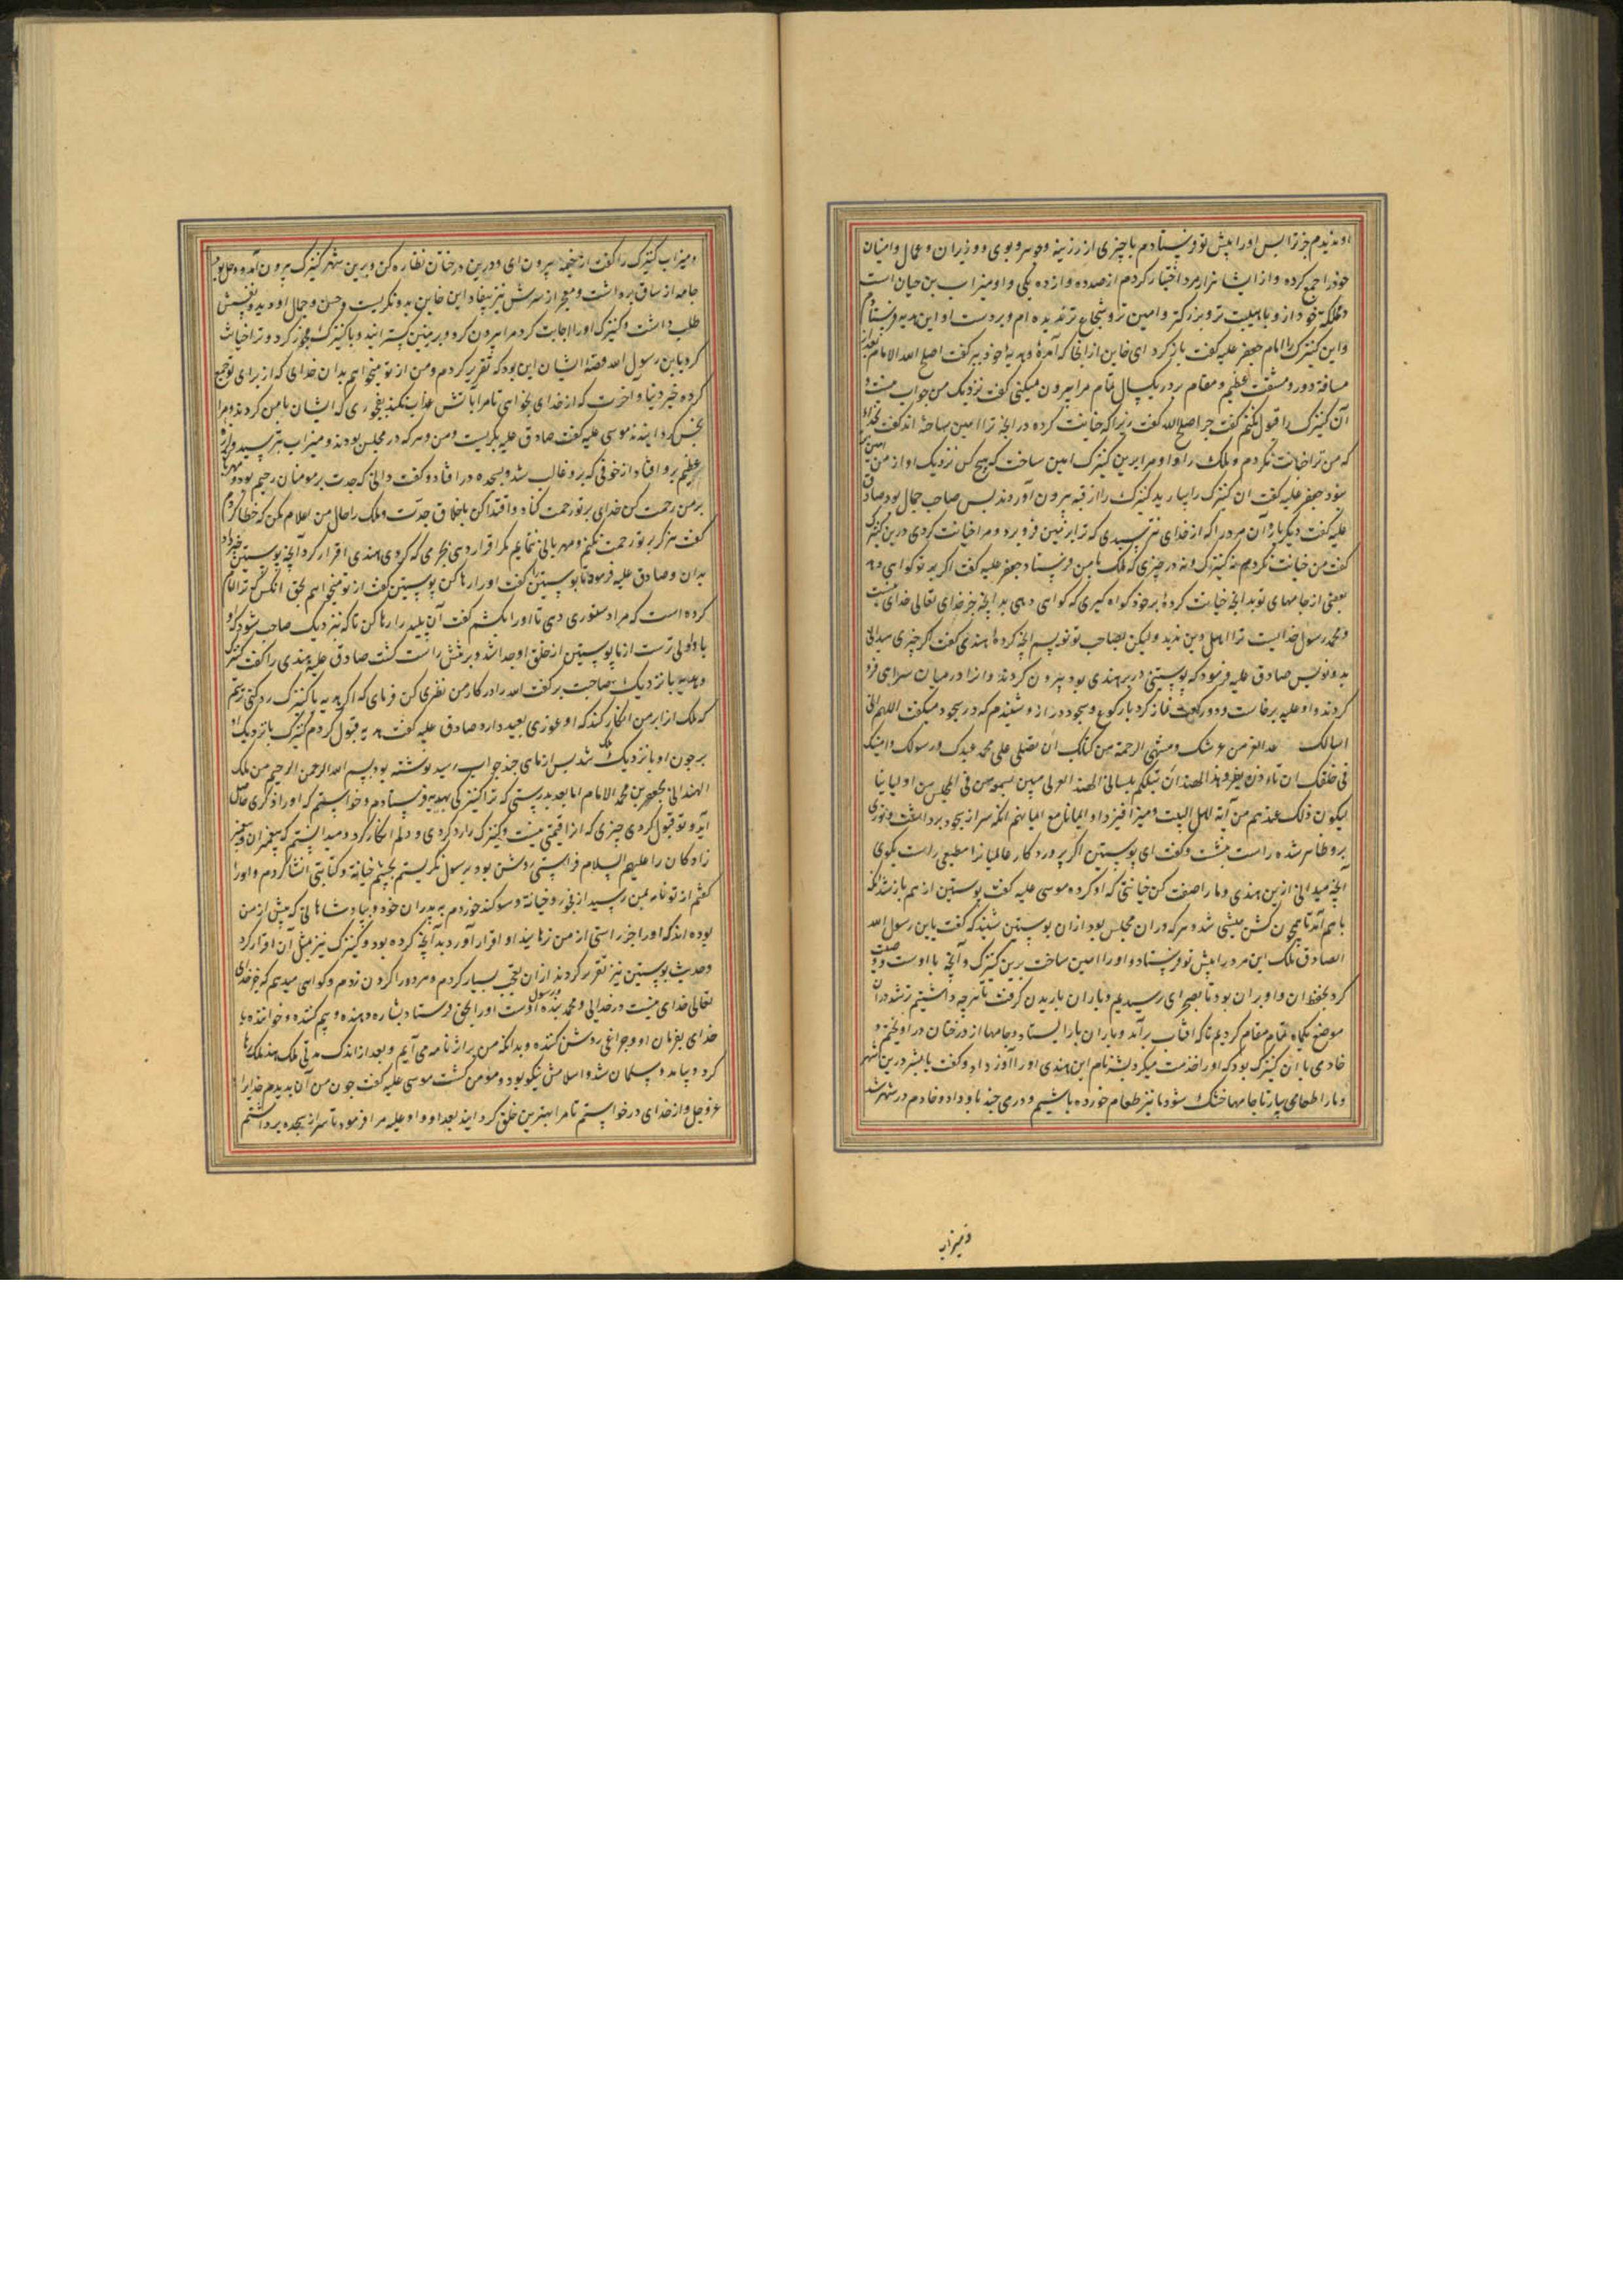 او ندیدم جز ترا بس اورا پیش تو فرستادم با چیزی از زرینه وجوهر وبوی و وزیران وعمال وامینان
خودرا جمع کرده واز ایشان هزار مرد اختیار کردم از صد ده واز ده یکی واو میزاب بن حیان است
درمملکت خود ازو باهیبت تر وبزرکتر وامین تر وشجاع تر ندیده ام وبردست او این هدیه فرستادم
واین کنیزک را امام جعفر علیه کفت باز کرد ای خاین از انجا که آمدۀ وهدیه خود ببر کفت اصلح الله الامام بعد از
مسافة دور ومشقت عظیم ومقام بر در یکسال تمام مرا بیرون میکنی کفت نزدیک من جواب نیست و
آن کنیزک را قبول نکنم کفت چرا اصلح الله کفت زیرا که خیانت کرده در انچه ترا امین ساخته اند کفت بخدای
که من ترا خیانت نکردم وملک را واو مرا برین کنیزک امین ساخت که هیچ کس نزدیک او از من امین تر
نبود جعفر علیه کفت ان کنیزک را بیارید کنیزک را از قبه بیرون آوردند بس صاحب جمال بود صادق
علیه کفت دیکر بار آن مرد را که از خدای نترسیدی که ترا بزمین فرو برد ومرا خیانت کردی درین کنیزک
کفت من خیانت نکردم نه کنیزک ونه در چیزی که ملک با من فرستاد جعفر علیه کفت اکر بر تو کواهی دهد
بعضی از جامهای تو بدانچه خیانت کردۀ برخود کواه کیری که کواهی دهی بدانچه جز خدای تعالی خدای نیست
ومحمد رسول خداست ترا اهل دین ندید ولیکن بصاحب تو نویسم انچه کرده هندی کفت اکر چیزی میدانی
بدو نویس صادق علیه فرمود که پوستینی در بر هندی بود بیرون کردند وانرا در میان سرای فرو
کردند واو علیه برخاست ودو رکعت نماز کرد بارکوع وسجود دراز وشنیدم که در سجود میکفت اللهم انی
اسالک بمعاقد العز من عرشک ومنتهی الرحمة من کتابک ان تصلی علی محمد عبدک ورسولک وامینک
فی خلقک ان تاءذن لفرو هذا الهندی ان یتکلم بلسان الهند العربی مبین یسمعه من فی المجلس من اولیائنا
لیکون ذلک عندهم من آیة اهل البیت ومیزانا فیزدادوا ایمانا مع ایمانهم انکه سر از سجود برداشت ونوری
برو ظاهر شده راست بنشست وکفت ای پوستین اکر پروردکار عالمیانرا مطیعی راست بکوی
انچه میدانی ازین هندی ومارا صفت کن خیانتی که او کرده موسی علیه کفت پوستین از هم باز شد انکه
باهم آمد تا همچون کبش میشی شد وهرکه دران مجلس بود ازان پوستین شنید که کفت یابن رسول الله
الصادق ملک این مرد را پیش تو فرستاد واورا امین ساخت برین کنیزک وآنچه با اوست وصیت
کرد بحفظ ان واو بران بود تا بصحرای رسیدیم وباران باریدن کرفت تا هرچه داشتیم تر شد دران
موضع یکماه تمام مقام کردیم تا که افتاب برآمد وباران باز ایستاد وجامها از درختان در اویختم و
خادمی با ان کنیزک بود که اورا خدمت میکرد بشر نام این هندی اورا آواز داد وکفت یا بشر درین شهر شو
ومارا طعامی بیار تا جامها خشک شود تا نیز طعام خورده باشیم ودرمی چند باو داد وخادم در شهر شد
ومیزاب
ومیزاب کنیزک را کفت از خیمه بیرون ای ودرین درختان نظاره کن ودرین شهر کنیزک بیرون آمد ووحل بود
جامه از ساق برداشت ومعجر از سرش نیز بیفتاد این خاین بدو نکریست وحسن وجمال او دید ونفسش
طلب داشت وکنیزک اورا اجابت کرد مرا بیرون کرد وبر زمین بسترانید وبا کنیزک فجور کرد وترا خیانت
کرد یابن رسول الله قصۀ ایشان این بود که تقریر کردم ومن از تو میخواهم بدان خدای که از برای تو جمع
کرده خیر دنیا وآخرت که از خدای بخواهی تا مرا باتش عذاب نکند بفجوری که ایشان بامن کردند ومرا
نجس کردانیدند موسی علیه کفت صادق علیه بکریست ومن وهر که در مجلس بودند ومیزاب بترسید ولرزۀ
عظیم برو افتاد از خوفی که برو غالب شد وبسجده در افتاد وکفت دانی که جدت بر مومنان رحیم بود ومهربان
بر من رحمت کن خدای بر تو رحمت کناد واقتدا کن باخلاق جدت وملک را حال من اعلام مکن که خطا کردم
کفت هرکز بر تو رحمت نکنم ومهربانی ننمایم مکر اقرار دهی بجرمی که کردی هندی اقرار کرد آنچه پوستین خبر داد
بدان وصادق علیه فرمود تا پوستین را کفت اورا رها کن پوستین کفت از تو میخواهم بحق انکس که ترا امام
کرده است که مرا دستوری دهی تا اورا بکشم کفت آن پلید را رها کن تا که نزدیک صاحب شود که او
باو اولی ترست از ما پوستین از حلق او جدا شد وبر مثش راست کشت صادق علیه هندی را کفت کنیزک
وهدیه باز نزدیک صاحبت بر کفت الله را در کار من نظری کن فرمای که اکر هدیه یا کنیزک رد کنی ترسم
که ملک انرا بر من انکار کند که او عقوبتی بعید دارد صادق علیه کفت هدیه قبول کردم کنیزک باز نزدیک او
بر چون او باز نزدیک ملک شد بس از ماهی چند جواب رسید نوشته بود بسم الله الرحمن الرحیم من ملک
الهند الی جعفر بن محمد الامام اما بعد بدرستی که ترا کنیزکی بهدیه فرستادم وخواستم که اورا ذکری حاصل
آید وتو قبول کردی چیزی که انرا قیمتی نیست وکنیزک را رد کردی ودلم انکار کرد ومیدانستم که پیغمبران وپیغمبر
زادکان را علیهم السلام فراستی روشن بود برسول نکریستم بچشم خیانة وکتابتی انشا کردم واورا
کفتم از تو نامه بمن رسید از فجور وخیانة وسوکند خوردم به پدران خود وپادشاهانی که پیش از من
بوده اند که اورا جز راستی از من نرهاند او اقرار آورد بدآنچه کرده بود وکنیزک نیز بمثل آن اقرار کرد
وحدیث پوستین نیز تقریر کردند ازان تعجب بسیار کردم وهر دورا کردن زدم وکواهی میدهم که جز خدای
تعالی خدای نیست در خدایی ومحمد بنده ورسول اوست اورا بحق فرستاد بشاره دهنده وبیم کننده وخواننده با
خدای بفرمان او وچراغی روشن کننده وبدانکه من بر اثر نامه می آیم وبعد از اندک مدتی ملک هند ملک رها
کرد وبیامد ومسلمان شد واسلامش نیکو بود ومؤمن کشت موسی علیه کفت چون من آن بدیدم خدایرا
عزوجل واز خدای درخواستم تا مرا بهترین خلق کرداند بعد او واو علیه مرا فرمود تا سر از سجده برداشتم